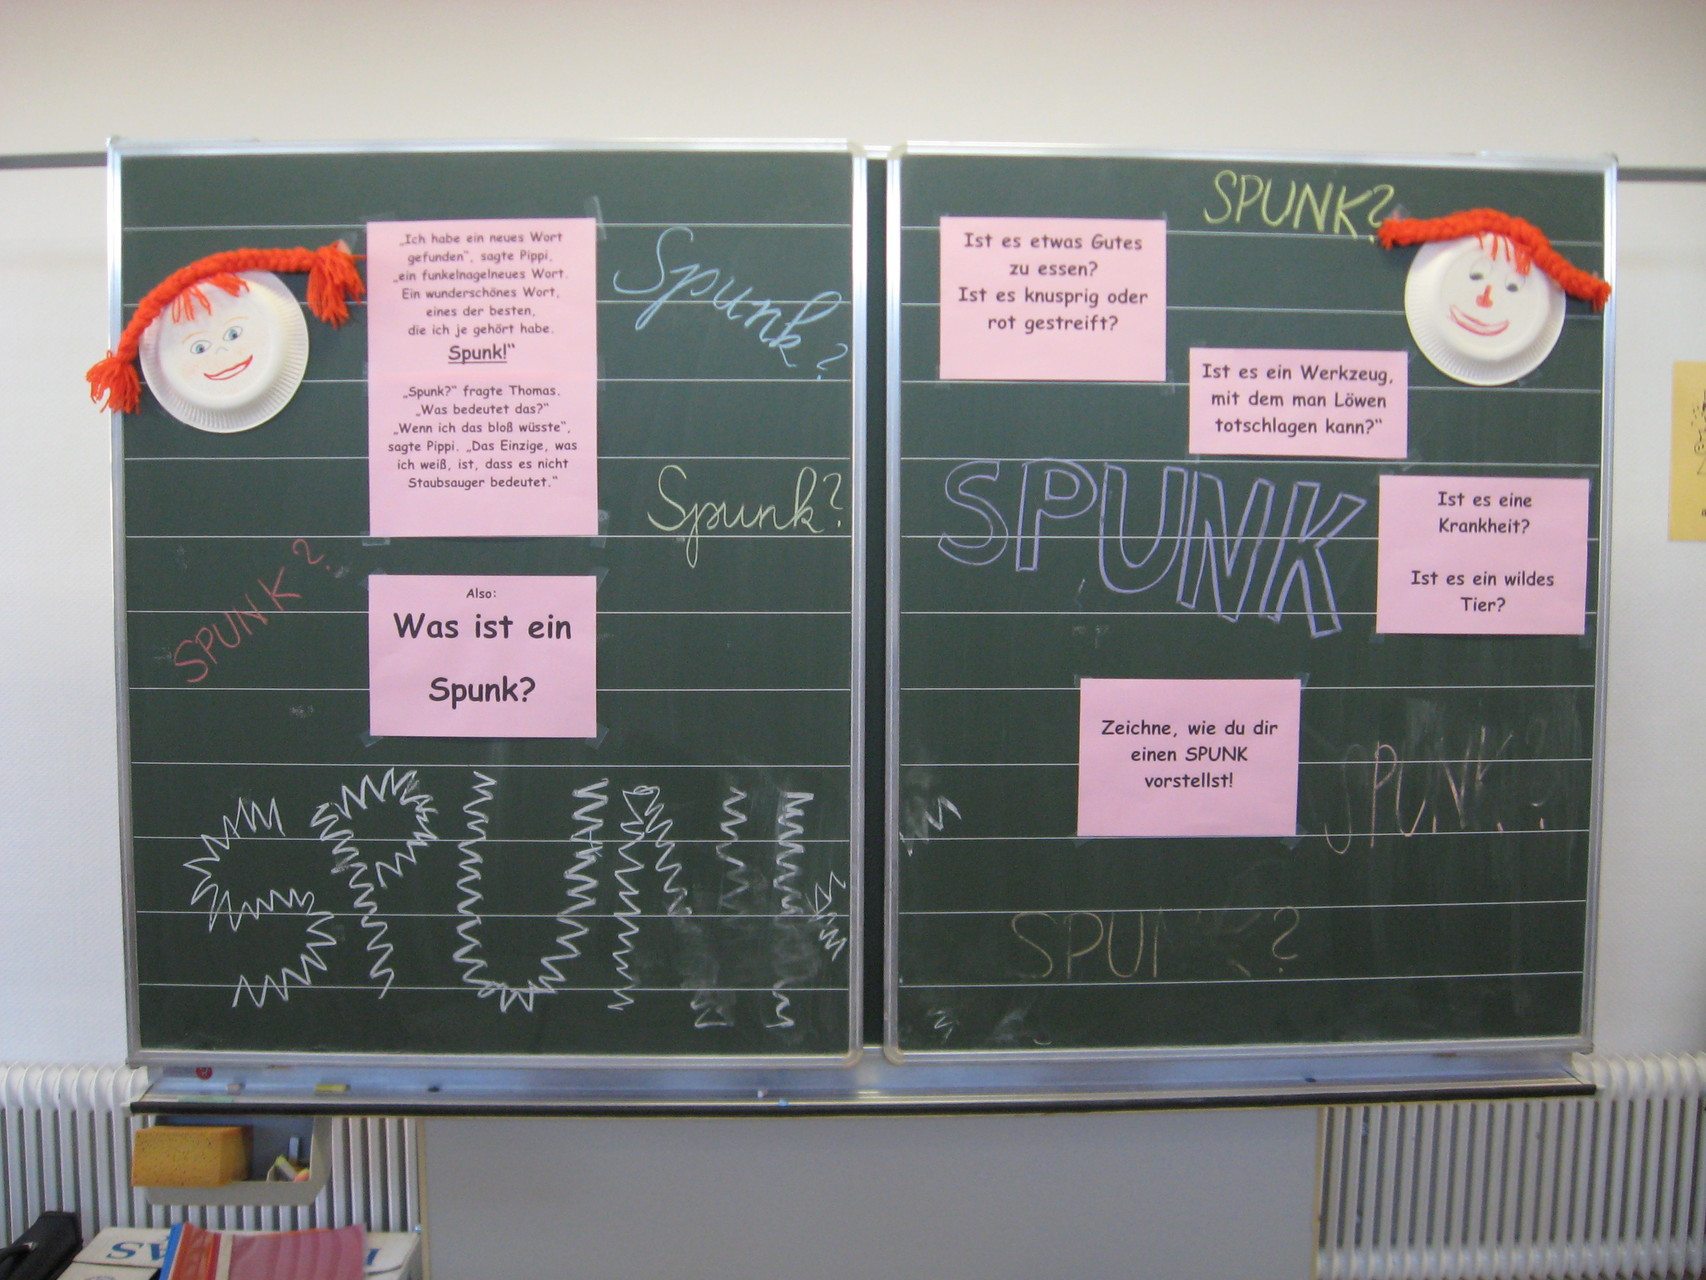 „Ich habe ein neues Wort
gefunden“, sagte Pippi,
„ein funkelnagelneues Wort.
Ein wunderschönes Wort,
eines der besten,
die ich je gehört habe.
Spunk!“
„Spunk?“ fragte Thomas.
„Was bedeutet das?“
„Wenn ich das bloß wüsste“,
sagte Pippi. „Das Einzige, was
ich weiß, ist, dass es nicht
Staubsauger bedeutet.“
Spunk?
Spunk?
SPUNK?
Also:
Was ist ein
Spunk?
SPUNK
SPUNK?
Ist es etwas Gutes
zu essen?
Ist es knusprig oder
rot gestreift?
Ist es ein Werkzeug,
mit dem man Löwen
totschlagen kann?“
SPUNK
Ist es eine
Krankheit?
Ist es ein wildes
Tier?
Zeichne, wie du dir
einen SPUNK
vorstellst!
SPUNK?
SPUNK?